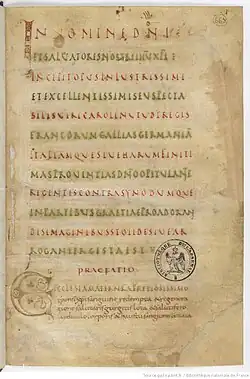 IN NOMINE DNI
ET SALVATORIS NOSTRI IHU XPI
INCIPIT OPUS INLUSTRISSIMI
ET EXCELLENTISSIMI SEU SPECTA
BILIS UIRI CAROLI NUTU DI REGIS
FRANCORUM GALLIAS GERMANIA
ITALIAMQUE SIUE HARUM FINITI
MAS PROUINTIAS DNO OPITULANTE
REGENTIS CONTRA SYNODUM QUE
IN PARTIBUS GRAETIAE PRO ADORAN
DIS IMAGINIBUS STOLIDE SIUE AR
ROGANTER GESTA EST
PRAEFATIO
ECCLESIA MATER NOSTRA PRETIOSISSIMO
sponsi sui sanguine redempta